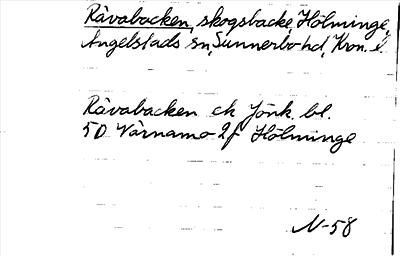 Råvabacken, skogsbacke, Hölminge,
Angelstads sn, Sunnerbo hd, Kron. l.
Råvabacken ek Jönk. bl.
5D Värnamo 2f Hölminge
N-58